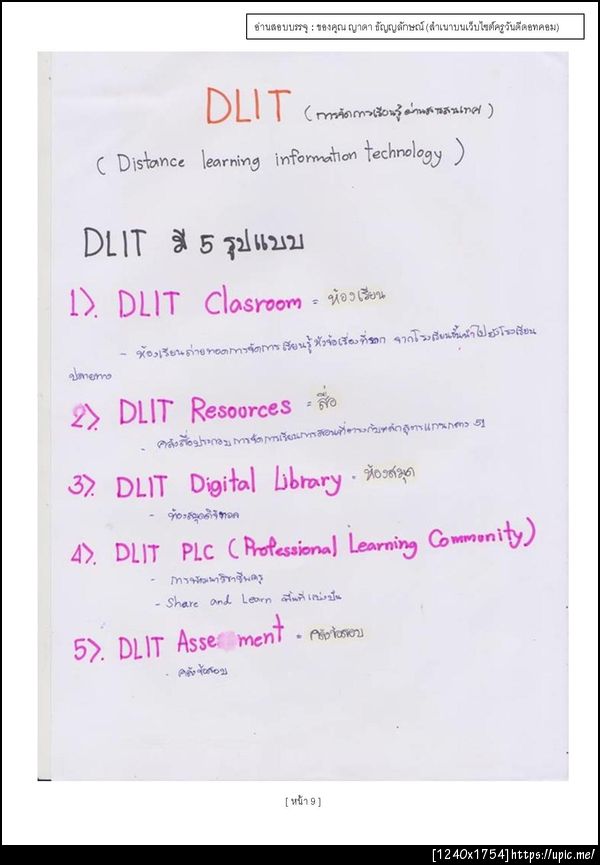 อ่านสอบบรรจุ : ของคุณ ญาดา ธัญญลักษณ์ (สำเนาบนเว็บไซต์ครูวันดีดอทคอม)
DLIT (การจัดการเรียนรู้ผ่านสารสนเทศ)
( Distance learning information technology )
DLIT มี 5 รูปแบบ
1). DLIT Clasroom = ห้องเรียน
- ห้องเรียนถ่ายทอดการจัดการเรียนรู้ หัวข้อเรื่องที่ยาก จากโรงเรียนชั้นนำไปยังโรงเรียน
ปลายทาง
2). DLIT Resources = สื่อ
- คลังสื่อประกอบการจัดการเรียนการสอนที่ตรงกับหลักสูตรแกนกลาง 51
3). DLIT Digital Library = ห้องสมุด
- ห้องสมุดดิจิตอล
4). DLIT PLC (Professional Learning Community)
- การพัฒนาวิชาชีพครู
- Share and Learn พื้นที่แบ่งปัน
5). DLIT Assessment = คลังข้อสอบ
- คลังข้อสอบ
[ หน้า 9 ]
[1240x1754]https://upic.me/